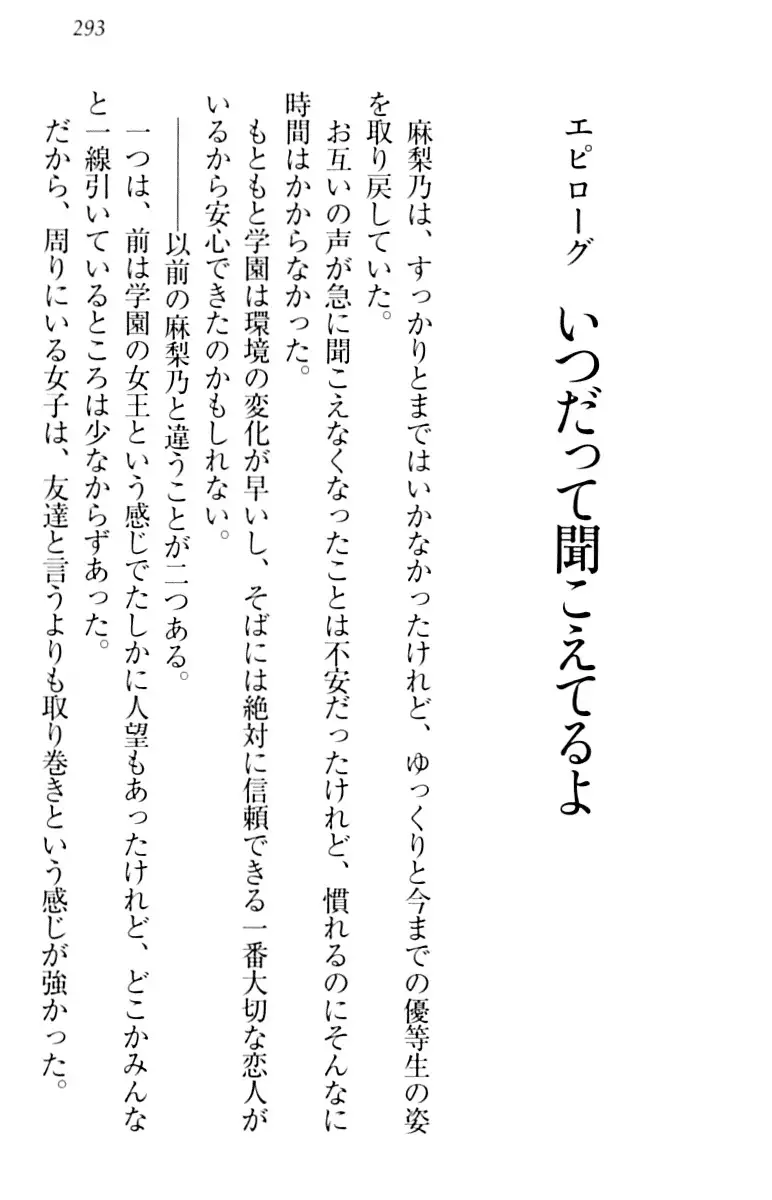 293
エピローグ　いつだって聞こえてるよ
麻梨乃は、すっかりとまではいかなかったけれど、ゆっくりと今までの優等生の姿
を取り戻していた。
お互いの声が急に聞こえなくなったことは不安だったけれど、慣れるのにそんなに
時間はかからなかった。
もともと学園は環境の変化が早いし、そばには絶対に信頼できる一番大切な恋人が
いるから安心できたのかもしれない。
――以前の麻梨乃と違うことが二つある。
一つは、前は学園の女王という感じでたしかに人望もあったけれど、どこかみんな
と一線引いているところは少なからずあった。
だから、周りにいる女子は、友達と言うよりも取り巻きという感じが強かった。